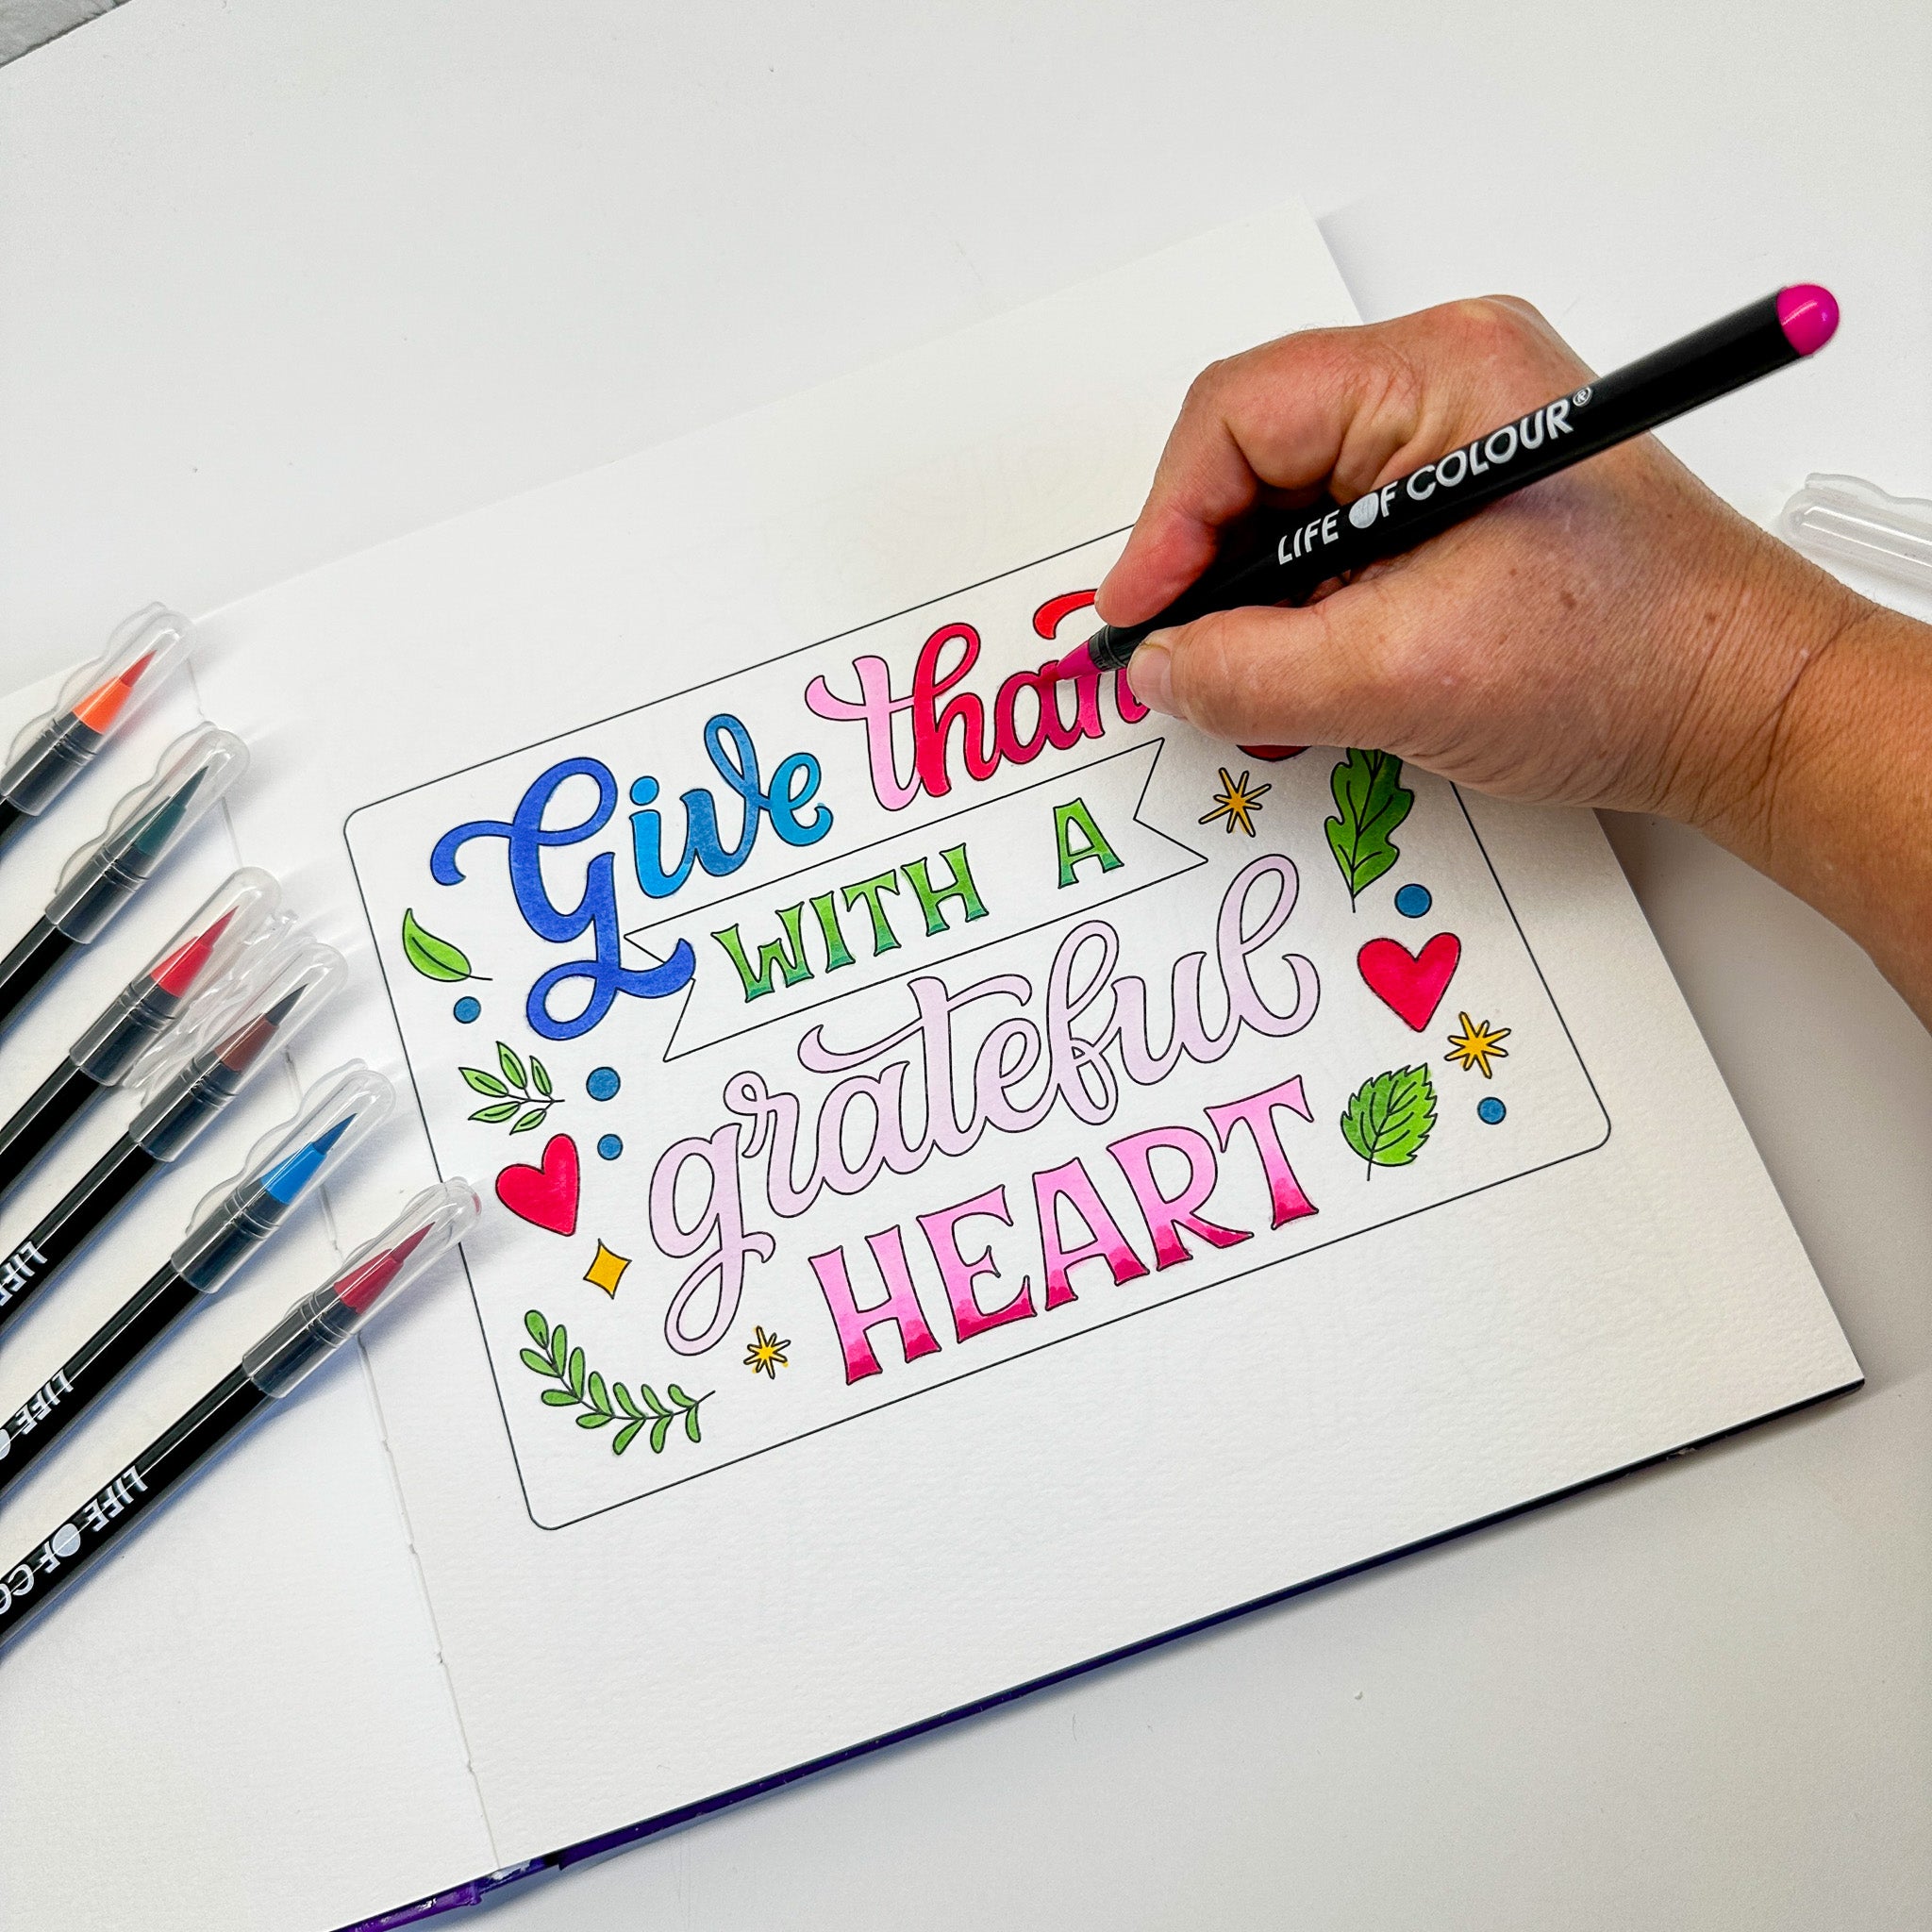 Give than
WITH A
grateful
HEART
LIFE OF COLOUR®
LIFE
LIFE
LIFE OF CO